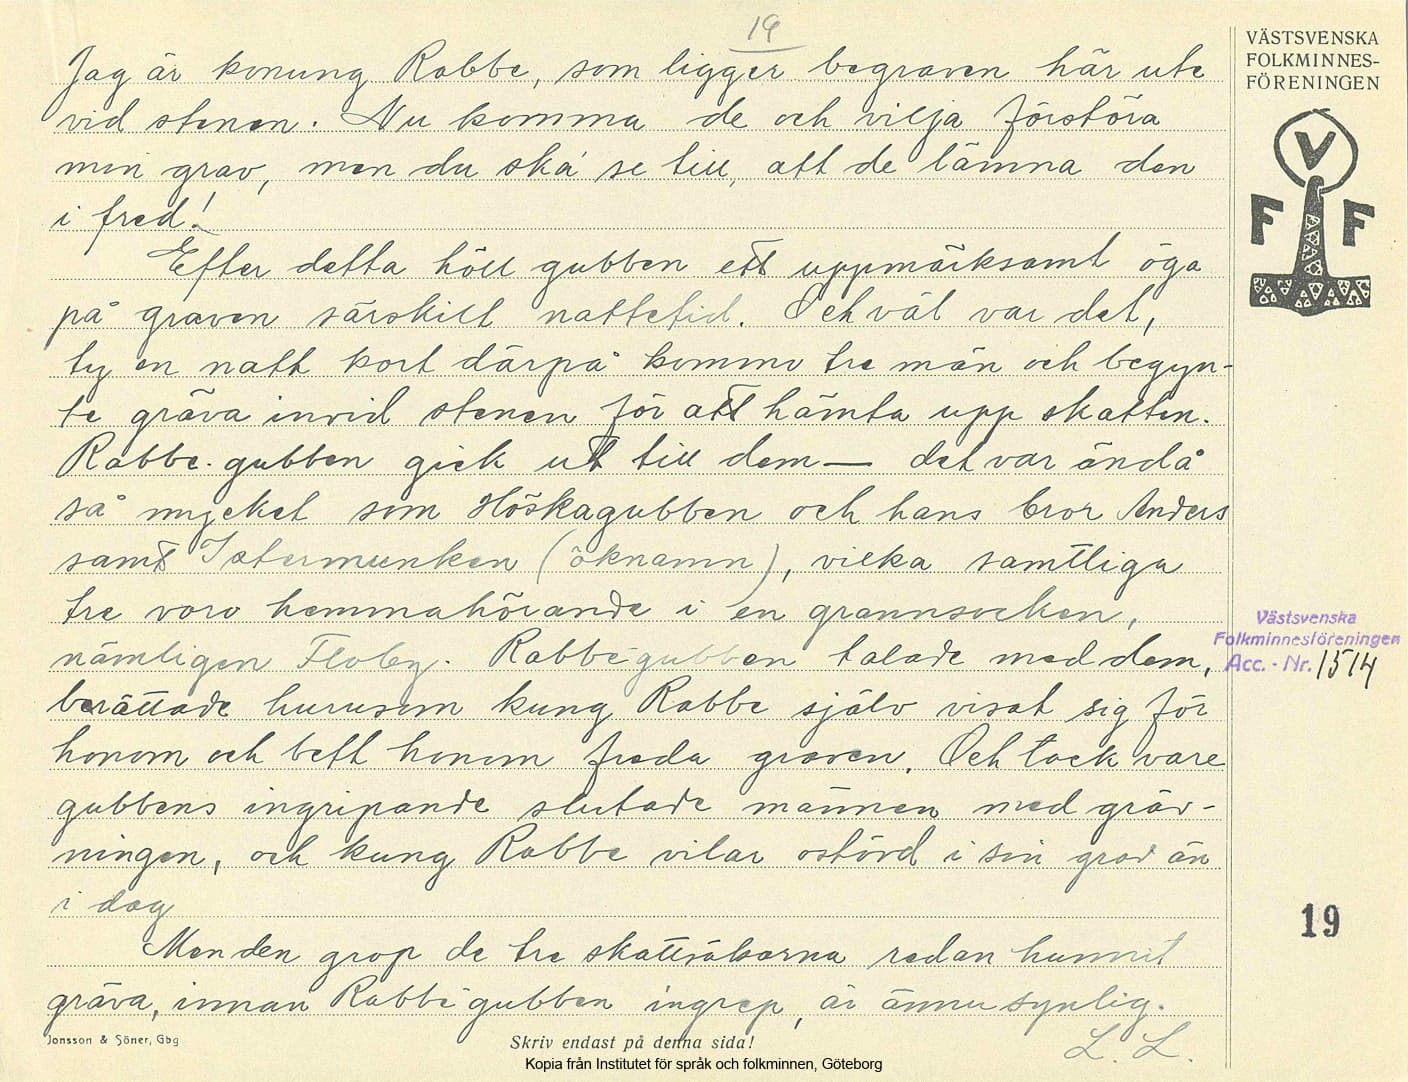 19
Jag är konung Rabbe, som ligger begraven här ute
vid stenen. Nu komma de och vilja förstöra
min grav, men du ska' se till, att de lämna den
i fred!
Efter detta höll gubben ett uppmärksamt öga
på graven särskilt nattetid. Och väl var det,
ty en natt kort därpå kommo tre män och begyn-
te gräva invid stenen för att hämta upp skatten.
Rabbe-gubben gick ut till dem — det var ändå
så mycket som Höskagubben och hans bror Anders
samt Istermunken (öknamn), vilka samtliga
tre voro hemmahörande i en grannsocken,
nämligen Floby. Rabbe-gubben talade med dem,
berättade hurusom kung Rabbe själv visat sig för
honom och bett honom freda graven. Och tack vare
gubbens ingripande slutade männen med gräv-
ningen, och kung Rabbe vilar ostörd i sin grav än
i dag
Men den grop de tre skattsökarna redan hunnit
gräva, innan Rabbe-gubben ingrep, är ännu synlig.
L. L.
VÄSTSVENSKA
FOLKMINNES-
FÖRENINGEN
V
F F
Västsvenska
Folkminnesföreningen
Acc. - Nr. 1514
19
Jonsson & Söner, Gbg
Skriv endast på denna sida!
Kopia från Institutet för språk och folkminnen, Göteborg